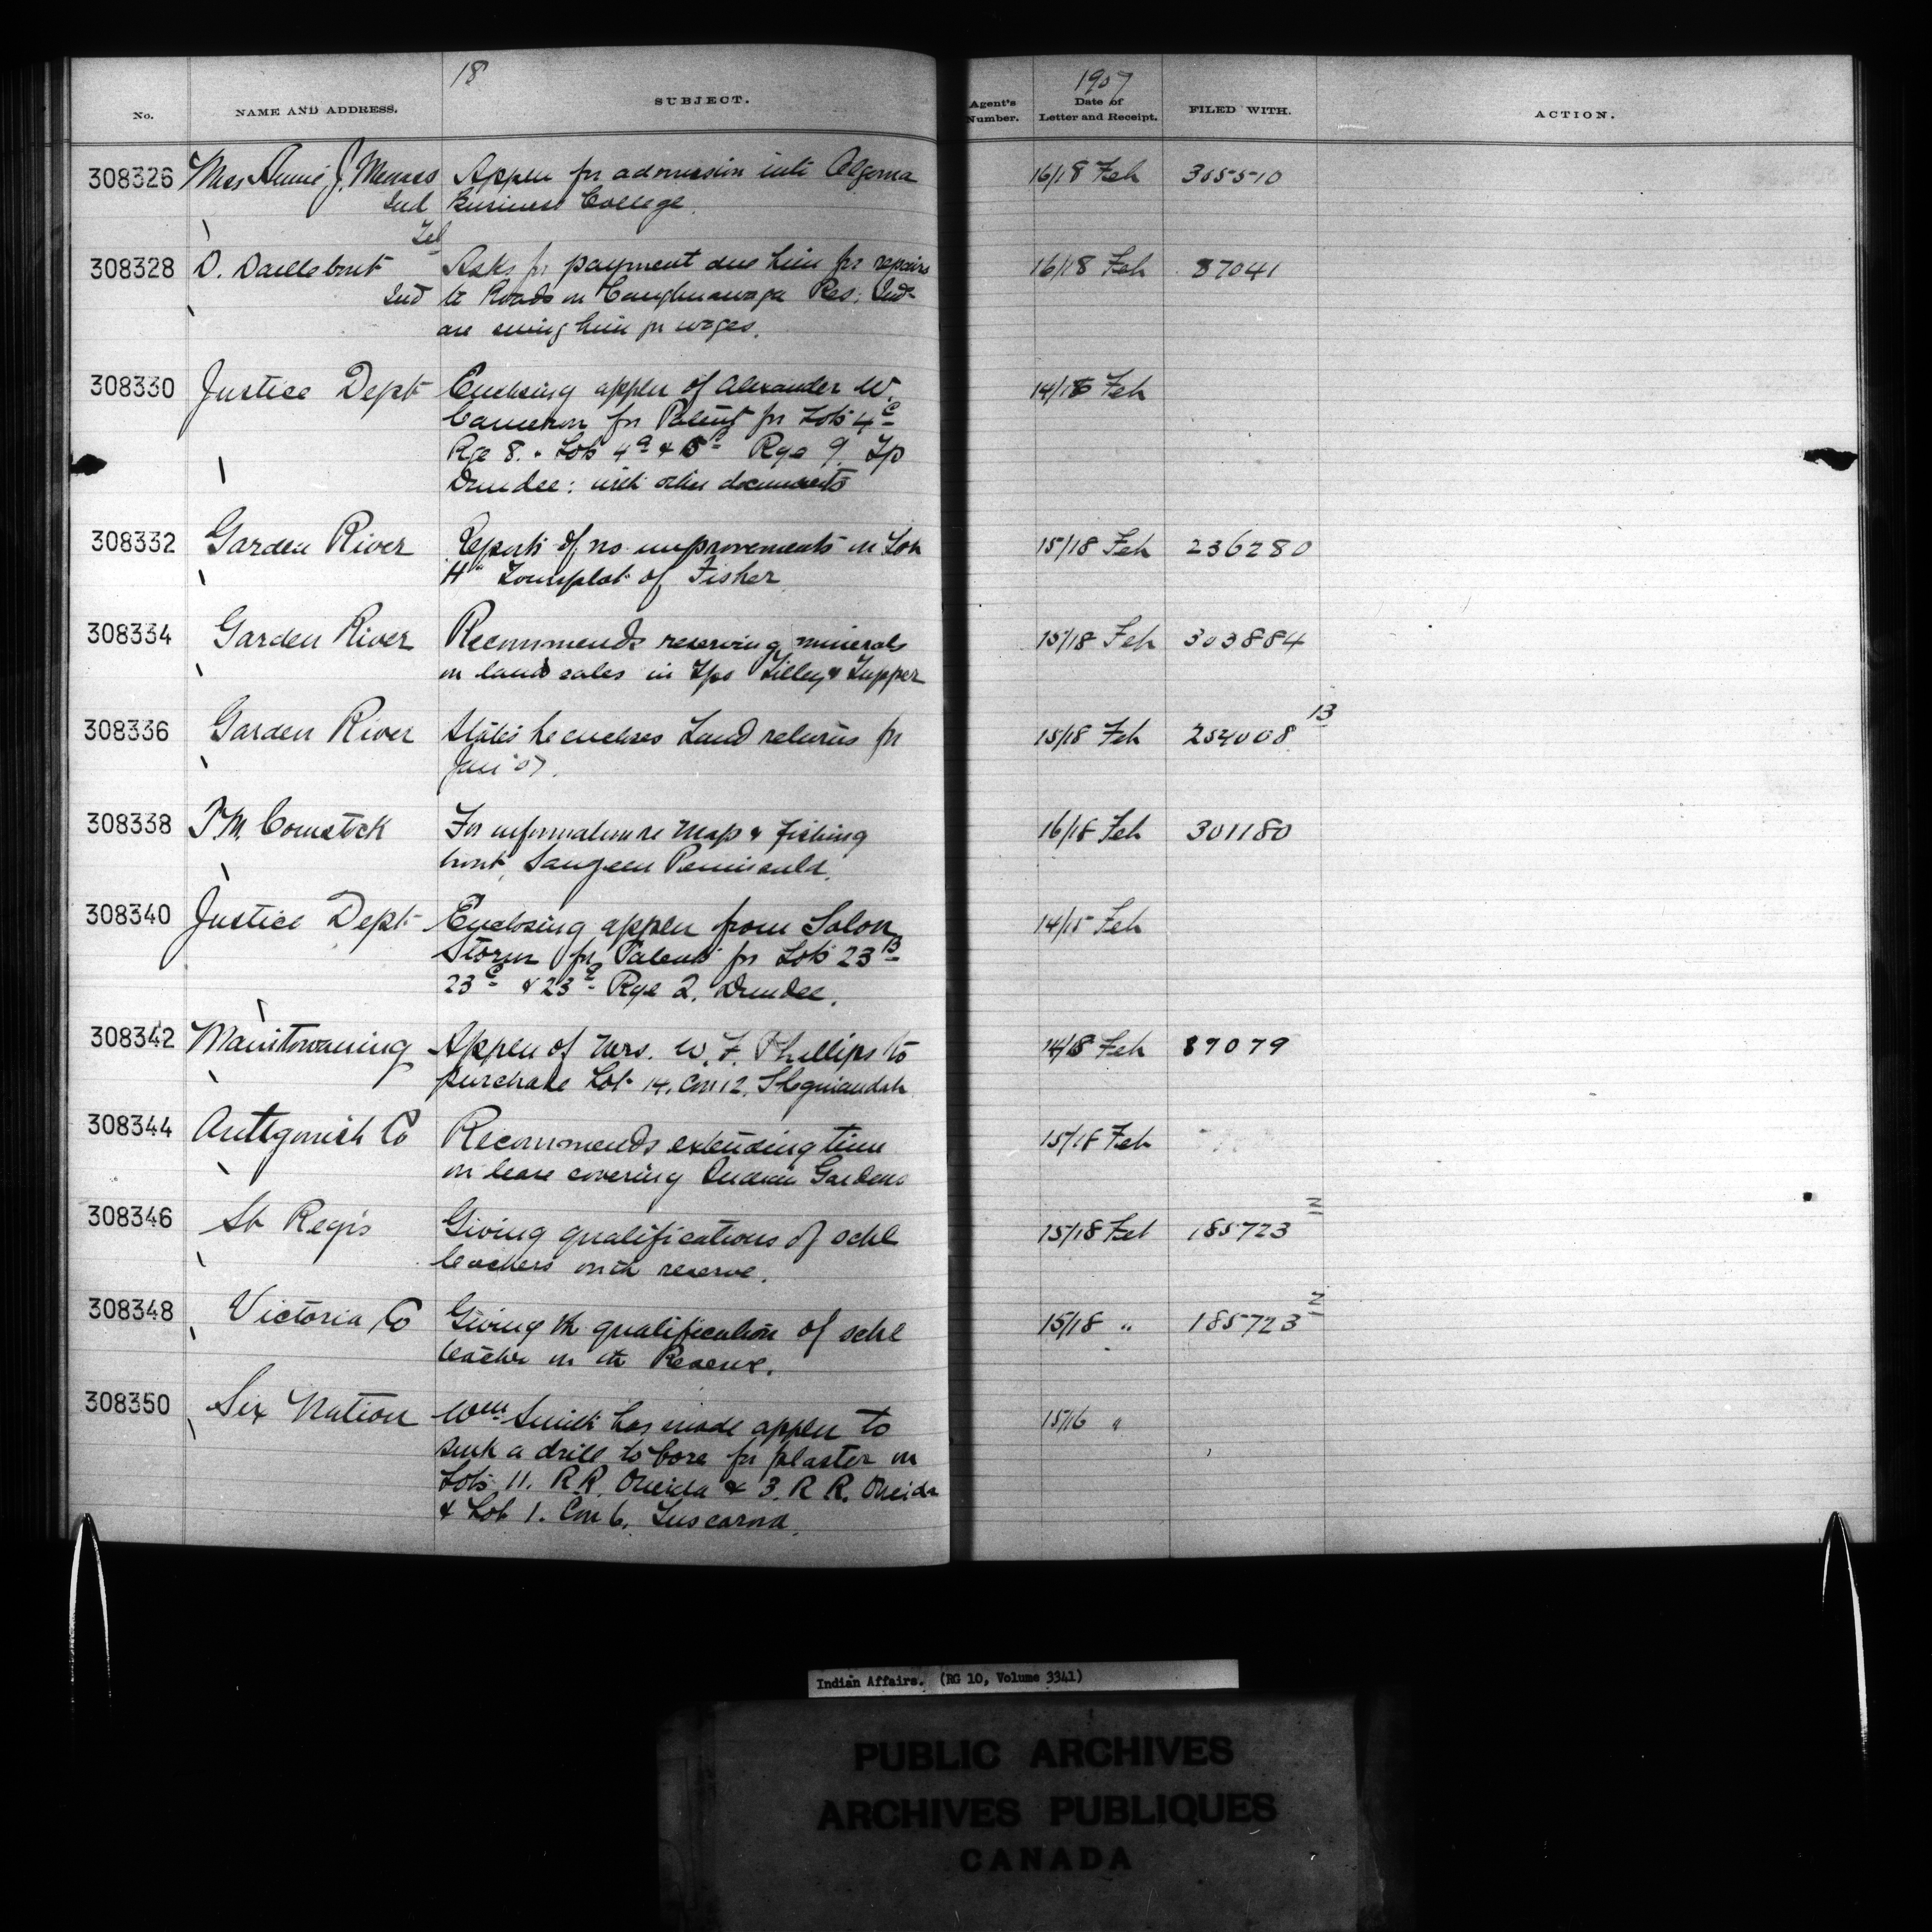 18
1907
No. NAME AND ADDRESS. SUBJECT. Agent's Number. Date of Letter and Receipt. FILED WITH. ACTION.
308326 Miss Annie J. Appln for admission into Algoma 16/18 Feb 305510
Ind Business College.
Tel
308328 D. Daillebout Asks for payment due him for repairs 16/18 Feb 87041
Ind to Roads on Caughnawaga Res. Inds
are suing him for wages.
308330 Justice Dept Enclosing appln of Alexander W. 14/18 Feb
Cameron for Patent for Lots 4c
Rge 8. Lots 4a & Rge 9. Tp
Dundee: with other documents
308332 Garden River Reports of no improvements on Lot 15/18 Feb 236280
"H" Townplot of Fisher
308334 Garden River Recommends reserving minerals 15/18 Feb 303884
on land sales in Tps Tilley & Tupper
308336 Garden River States he encloses Land returns for 15/18 Feb 254008 13
Jan '07.
308338 Comstock For information re Map & fishing 16/18 Feb 301180
Saugeen Peninsula.
308340 Justice Dept Enclosing appln from Solon 14/15 Feb
Storm for Patent for Lots 23B
23c & 23 Rge 2. Dundee.
308342 Manitowaning Appln of Mrs. W. F. Phillips to 14/18 Feb 89079
purchase Lot 14, Con 12, Sheguiandah
308344 Antigonish Co Recommends extending time 15/18 Feb
on lease covering Indian Gardens
308346 St Regis Giving qualifications of schl 15/18 Feb 185723 2
teachers on the reserve.
308348 Victoria Co Giving the qualification of schl 15/18 " 185723 2
teacher on the Reserve.
308350 Six Nation Wm Smith has made appln to 15/16 "
sink a drill to bore for plaster on
Lots 11. R.R. Oneida & 3. R R. Oneida
& Lot 1. Con 6, Tuscarora.
Indian Affairs. (RG 10, Volume 3341)
PUBLIC ARCHIVES
ARCHIVES PUBLIQUES
CANADA